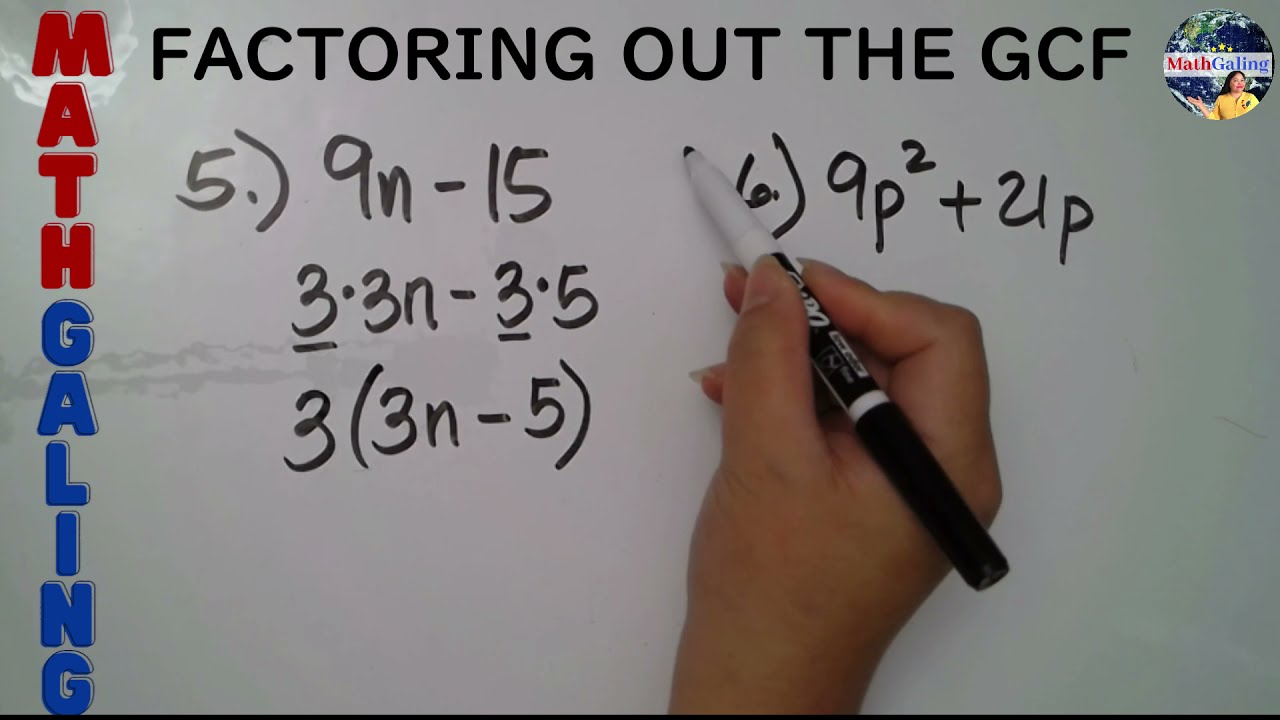 MATH GALING
FACTORING OUT THE GCF
MathGaling
5.) 9n - 15
3·3n - 3·5
3(3n - 5)
6.) 9p² + 21p
EXPO